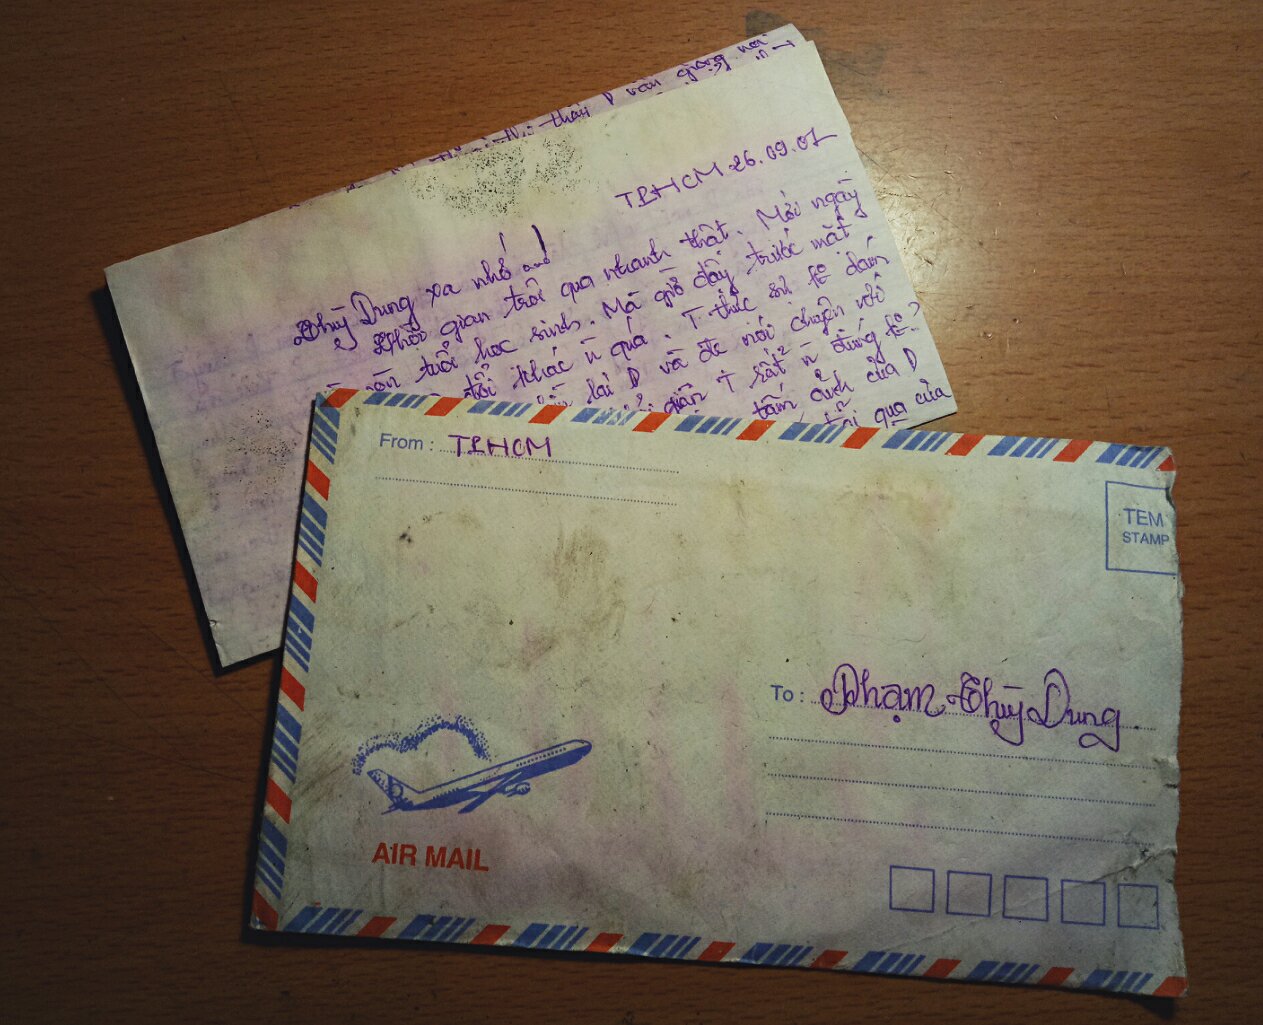 thấy D vẫn giống nơi
TPHCM 26.09.01
Thùy Dung xa nhớ!
Thời gian trôi qua nhanh thật. Mới ngày
tuổi học sinh. Mà giờ đây trước mắt
đổi khác ù quá. T thực sự
lại D và để nói chuyện với
T rất ù đúng
tấm ảnh của D
qua của
From : TPHCM
TEM
STAMP
To : Phạm Thùy Dung
AIR MAIL